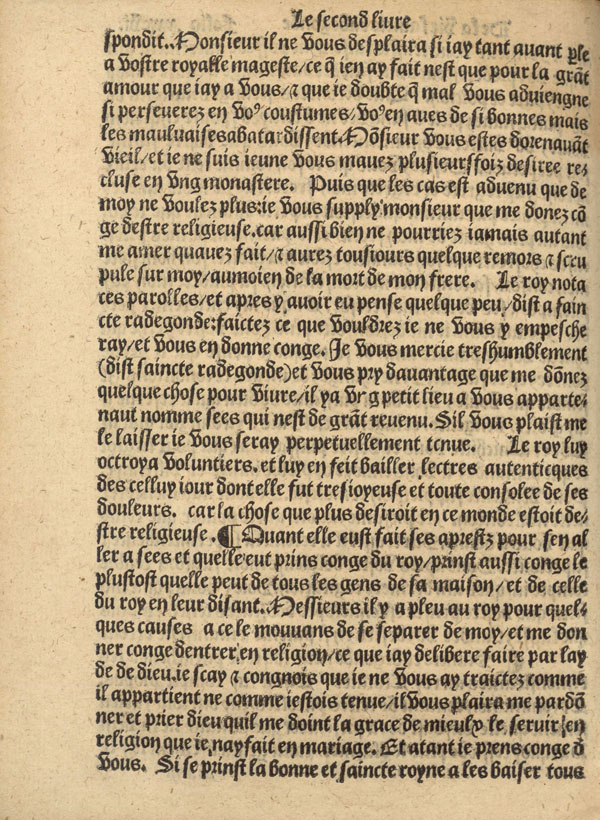 Le second liure
spondit. Monsieur il ne vous desplaira si iay tant auant ꝑle
a vostre royalle mageste/ce q̃ ien ay fait nest que pour la grãt
amour que iay a vous/⁊ que ie doubte q̃ mal vous aduiengne
si perseuerez en voꝰ coustumes/voꝰ en aues de si bonnes mais
les mauluaises abatardissent. Mõsieur vous estes dorenauãt
vieil/et ie ne suis ieune vous mauez plusieurs foiz desiree re
cluse en vng monastere. Puis que les cas est aduenu que de
moy ne voulez plus: ie vous supply monsieur que me donez cõ
ge destre religieuse. car aussi bien ne pourriez iamais autant
me amer quauez fait/⁊ aurez tousiours quelque remors ⁊ scru
pule sur moy/au moien de la mort de mon frere. Le roy nota
ces parolles/et apres y auoir eu pense quelque peu/dist a sain
cte radegonde: faictez ce que vouldrez ie ne vous y empesche
ray/et vous en donne conge. Je vous mercie treshumblement
(dist saincte radegonde) et vous pry dauantage que me dõnez
quelque chose pour viure/il y a vng petit lieu a vous apparte-
nant nomme sees qui nest de grãt reuenu. Sil vous plaist me
le laisser ie vous seray perpetuellement tenue. Le roy luy
octroya voluntiers. et luy en feit bailler lectres autenticques
des celluy iour dont elle fut tresioyeuse et toute consolee de ses
douleurs. car la chose que plus desiroit en ce monde estoit de-
stre religieuse. ¶ Quant elle eust fait ses aprestz pour sen al
ler a sees et quelle eut prins conge du roy/prinst aussi conge le
plustost quelle peut de tous les gens de sa maison/et de celle
du roy en leur disant. Messieurs il y a pleu au roy pour quel-
ques causes a ce le mouuans de se separer de moy/et me don
ner conge dentrer en religion/ce que iay delibere faire par lay
de de dieu. ie scay ⁊ congnois que ie ne vous ay traictez comme
il appartient ne comme iestois tenue/il vous plaira me pardõ
ner et prier dieu quil me doint la grace de mieulx le seruir en
religion que ie nay fait en mariage. Et atant ie prens conge d̃
vous. Si se prinst la bonne et saincte royne a les baiser tous